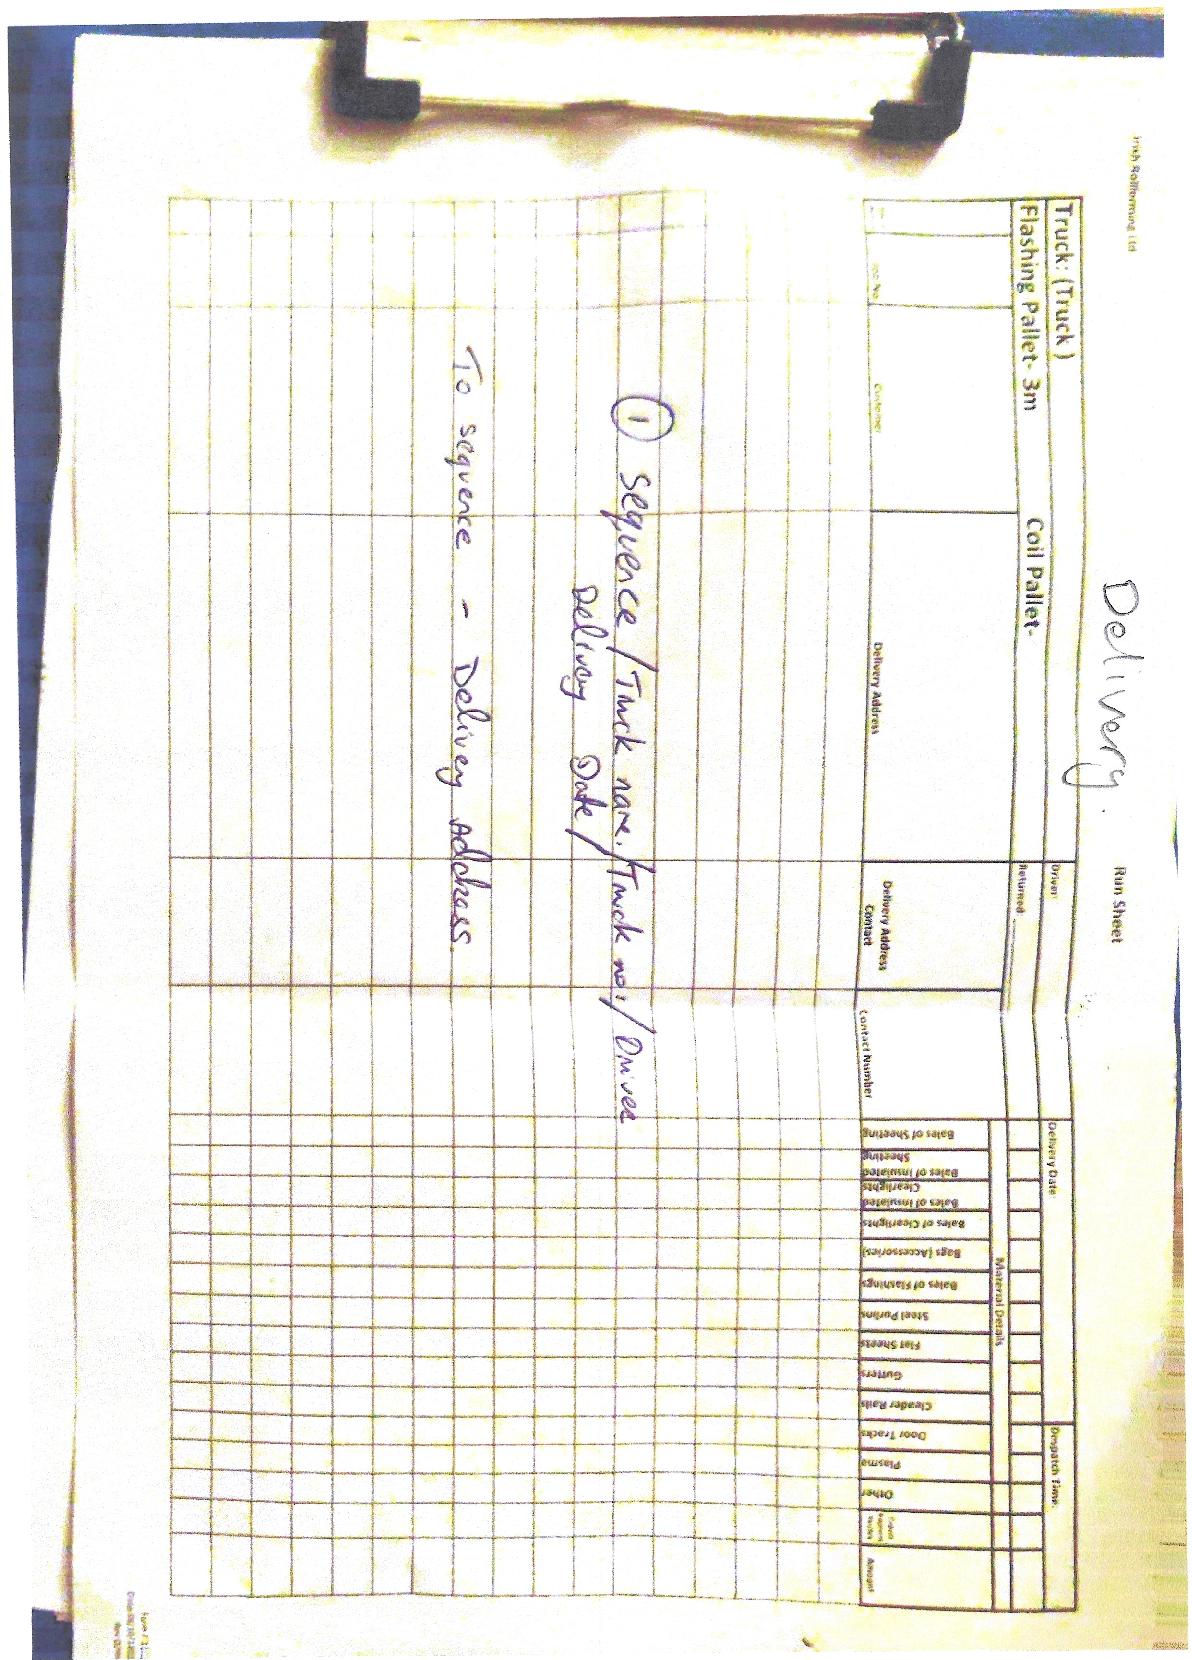 Irish Rollforming Ltd
Delivery.
Run Sheet
Truck: (Truck )
Driver:
Delivery Date:
Despatch Time:
Flashing Pallet- 3m
Coil Pallet-
Returned
Material Details
Customer
Delivery Address
Delivery Address
Contact
Contact Number
Bales of Sheeting
Bales of Insulated
Sheeting
Bales of Insulated
Clearlights
Bales of Clearlights
Bags (Accessories)
Bales of Flashings
Steel Purlins
Flat Sheets
Gutters
Cleader Rails
Door Tracks
Plasma
Other
Amount
① Sequence / Truck name. / Truck no. / Driver
Delivery Date /
To sequence - Delivery Address